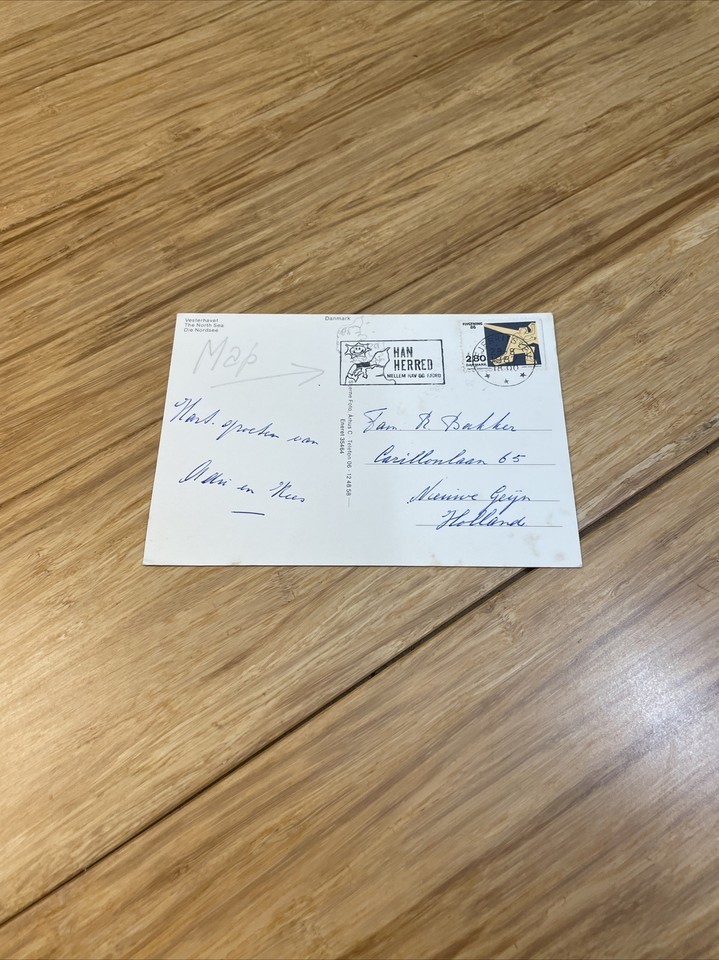 Vesterhavet
The North Sea
Die Nordsee
Danmark
Map
HAN
HERRED
MELLEM HAV OG FJORD
FORSKNING
86
280
DANMARK
18.00
Hart. groeten van
Adri en Kees
Stjerne Foto, Århus C · Telefon 06 · 12 48 58
Eneret 35464
Fam R Bakker
Carillonlaan 65
Nieuwe Geijn
Holland